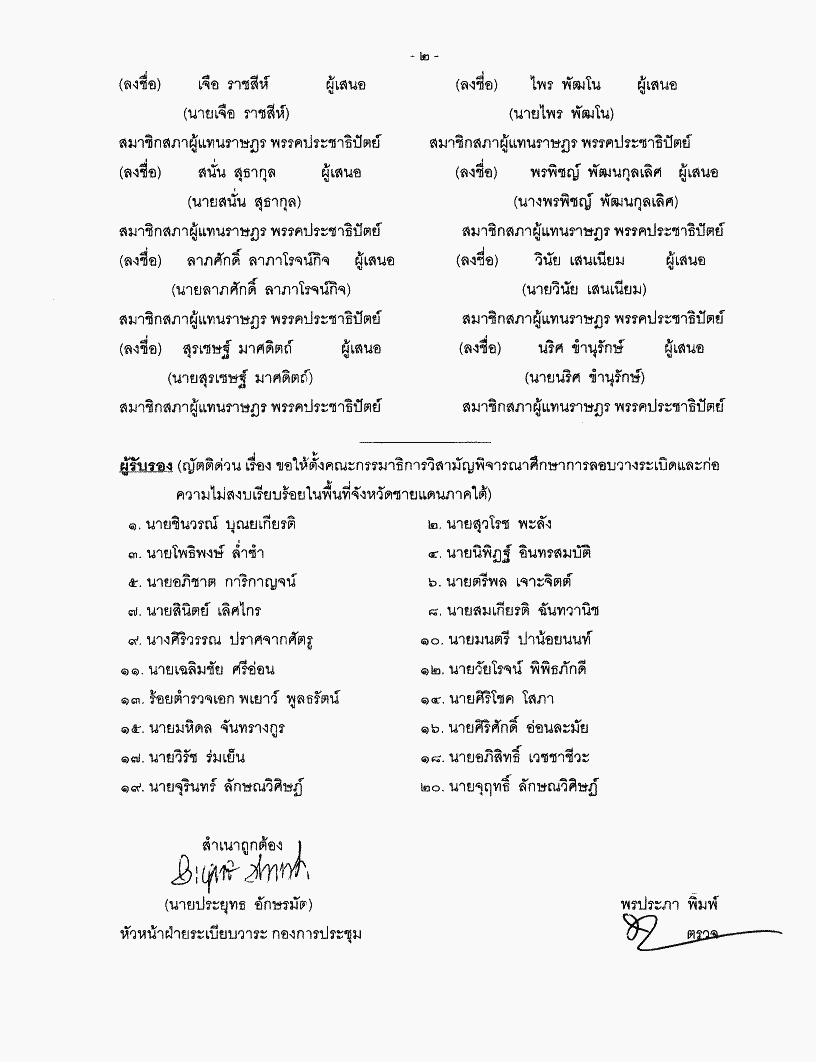 - ๒ -
(ลงชื่อ) เจือ ราชสีห์ ผู้เสนอ (ลงชื่อ) ไพร พัฒโน ผู้เสนอ
(นายเจือ ราชสีห์) (นายไพร พัฒโน)
สมาชิกสภาผู้แทนราษฎร พรรคประชาธิปัตย์ สมาชิกสภาผู้แทนราษฎร พรรคประชาธิปัตย์
(ลงชื่อ) สนั่น สุธากุล ผู้เสนอ (ลงชื่อ) พรพิชญ์ พัฒนกุลเลิศ ผู้เสนอ
(นายสนั่น สุธากุล) (นางพรพิชญ์ พัฒนกุลเลิศ)
สมาชิกสภาผู้แทนราษฎร พรรคประชาธิปัตย์ สมาชิกสภาผู้แทนราษฎร พรรคประชาธิปัตย์
(ลงชื่อ) ลาภศักดิ์ ลาภาโรจน์กิจ ผู้เสนอ (ลงชื่อ) วินัย เสนเนียม ผู้เสนอ
(นายลาภศักดิ์ ลาภาโรจน์กิจ) (นายวินัย เสนเนียม)
สมาชิกสภาผู้แทนราษฎร พรรคประชาธิปัตย์ สมาชิกสภาผู้แทนราษฎร พรรคประชาธิปัตย์
(ลงชื่อ) สุรเชษฐ์ มาศดิตถ์ ผู้เสนอ (ลงชื่อ) นริศ ขำนุรักษ์ ผู้เสนอ
(นายสุรเชษฐ์ มาศดิตถ์) (นายนริศ ขำนุรักษ์)
สมาชิกสภาผู้แทนราษฎร พรรคประชาธิปัตย์ สมาชิกสภาผู้แทนราษฎร พรรคประชาธิปัตย์
ผู้รับรอง (ญัตติด่วน เรื่อง ขอให้ตั้งคณะกรรมาธิการวิสามัญพิจารณาศึกษาการลอบวางระเบิดและก่อ
ความไม่สงบเรียบร้อยในพื้นที่จังหวัดชายแดนภาคใต้)
๑. นายชินวรณ์ บุณยเกียรติ ๒. นายสุวโรช พะลัง
๓. นายโพธิพงษ์ ล่ำซำ ๔. นายนิพิฏฐ์ อินทรสมบัติ
๕. นายอภิชาต การิกาญจน์ ๖. นายตรีพล เจาะจิตต์
๗. นายสินิตย์ เลิศไกร ๘. นายสมเกียรติ ฉันทวานิช
๙. นางศิริวรรณ ปราศจากศัตรู ๑๐. นายมนตรี ปาน้อยนนท์
๑๑. นายเฉลิมชัย ศรีอ่อน ๑๒. นายวัยโรจน์ พิพิธภักดี
๑๓. ร้อยตำรวจเอก พเยาว์ พูลธรัตน์ ๑๔. นายศิริโชค โสภา
๑๕. นายมหิดล จันทรางกูร ๑๖. นายศิริศักดิ์ อ่อนละมัย
๑๗. นายวิรัช ร่มเย็น ๑๘. นายอภิสิทธิ์ เวชชาชีวะ
๑๙. นายจุรินทร์ ลักษณวิศิษฏ์ ๒๐. นายจุฤทธิ์ ลักษณวิศิษฎ์
สำเนาถูกต้อง
(นายประยุทธ อักษรมัต) พรประภา พิมพ์
หัวหน้าฝ่ายระเบียบวาระ กองการประชุม ตรวจ